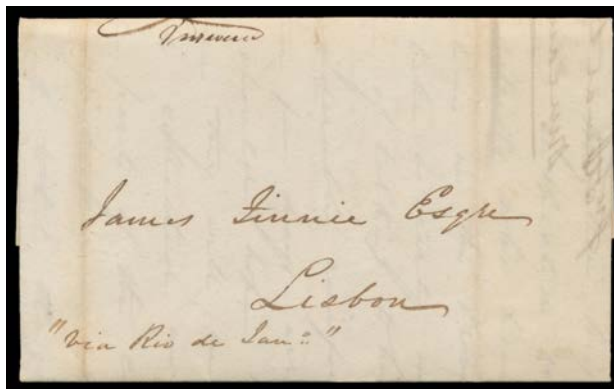 James Finnie Esqre
Lisbon
"Via Rio de Jan.o"